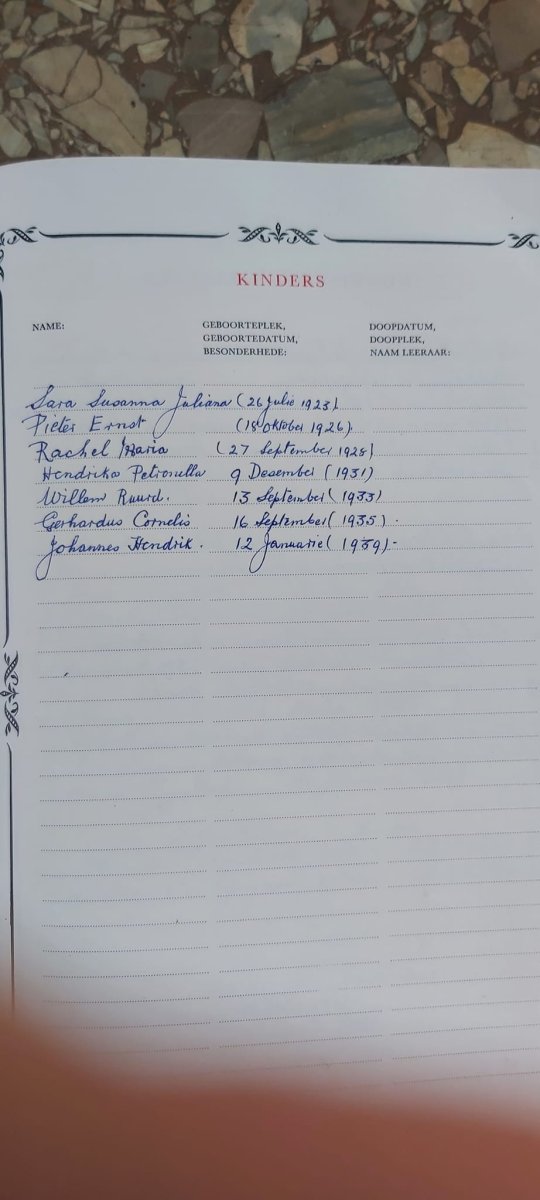 KINDERS
NAME: GEBOORTEPLEK, DOOPDATUM,
GEBOORTEDATUM, DOOPPLEK,
BESONDERHEDE: NAAM LEERAAR:
Sara Susanna Juliana (26 Julie 1923).
Pieter Ernst (18 Oktober 1926).
Rachel Maria (27 September 1928)
Hendrika Petronella 9 Desember (1931)
Willem Ruurd. 13 September (1933)
Gerhardus Cornelis 16 September (1935).
Johannes Hendrik. 12 Januarie (1939).-